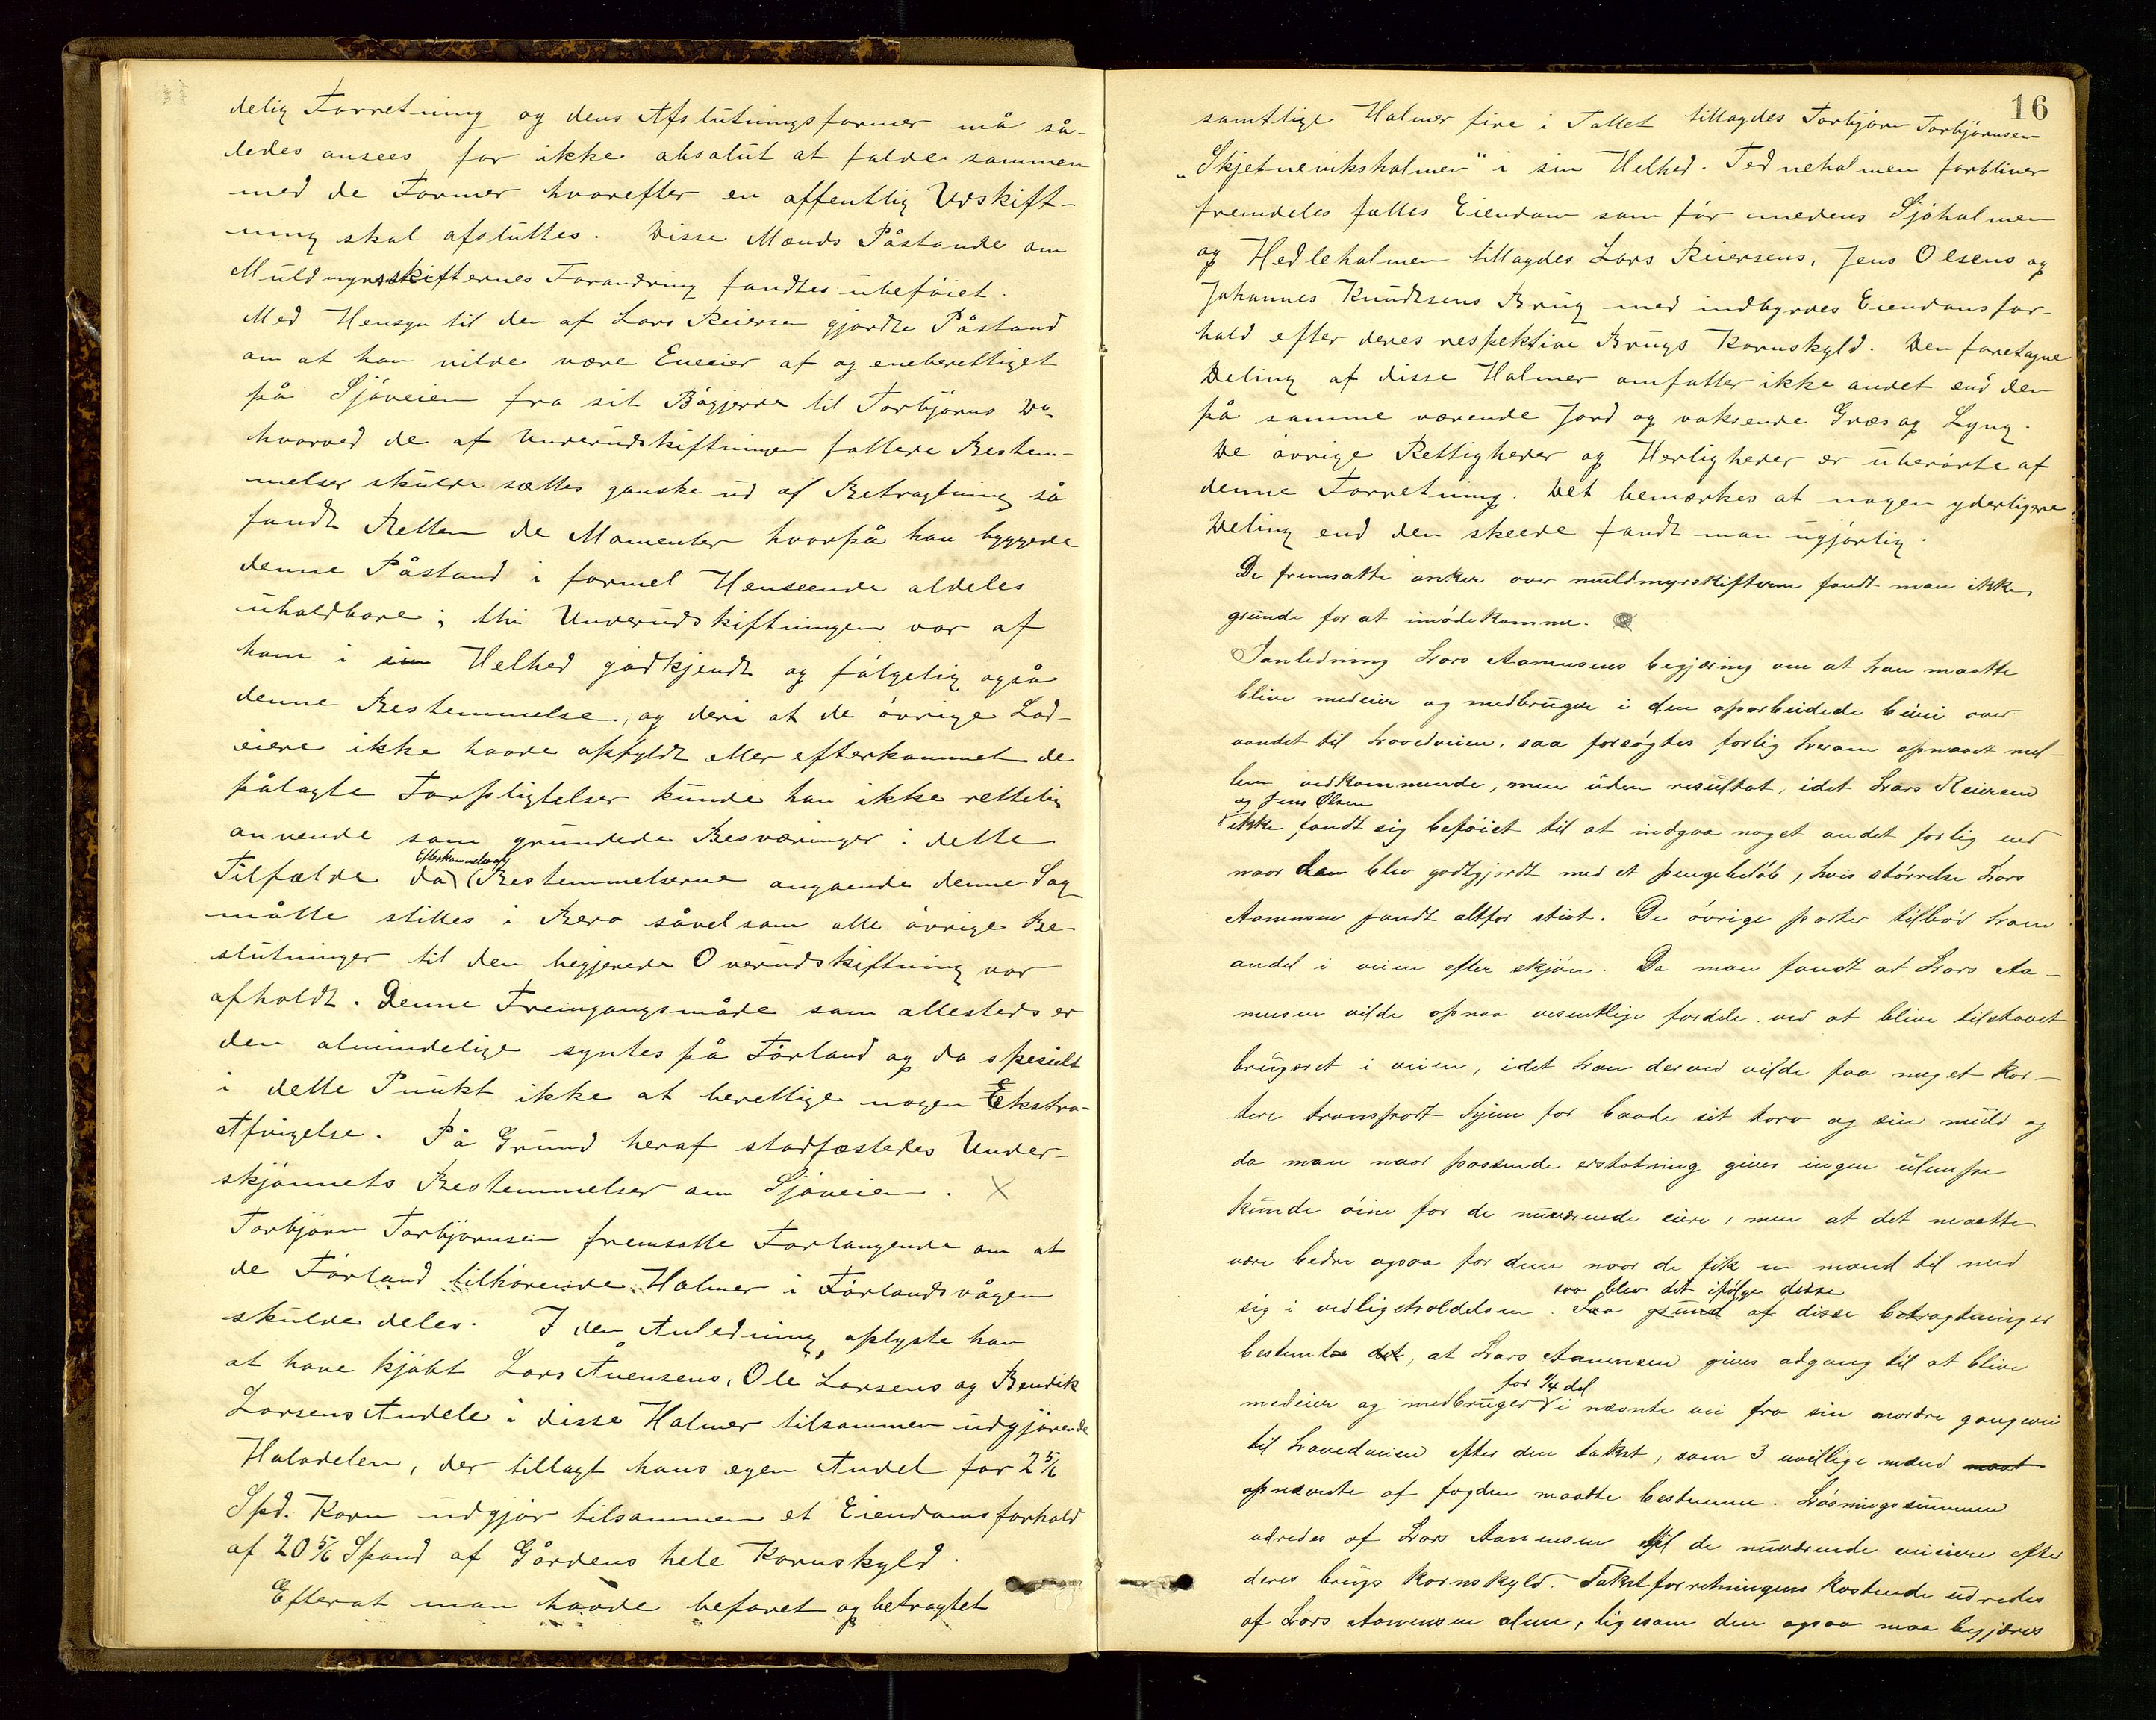 delig Forretning og dens Afslutningsformer må så-
ledes ansees for ikke absolut at falde sammen
med de Former hvorefter en offentlig Udskift-
ning skal afsluttes. Disse Mænds Påstande om
Muldmyrsskifternes Forandring fandtes ubeføiet.
Med Hensyn til den af Lars Reiersen gjordte Påstand
om at han vilde være Eneeier af og eneberettiget
på Sjøveien fra sit Bøgjerde til Torbjørns Do
hvorved de af Underudskiftningen fattede Bestem-
melser skulde sættes ganske ud af Betragtning så
fandt Retten de Momenter hvorpå han byggede
denne Påstand i formel Henseende aldeles
uholdbare; thi Underudskiftningen var af
ham i sin Helhed godkjendt og følgelig også
denne Bestemmelse, og deri at de øvrige Lod-
eiere ikke havde opfyldt eller efterkommet de
pålagte Forpligtelser kunde han ikke rettelig
anvende som grundede Besværinger i dette
Efterkommelse af
Tilfælde da Bestemmelserne angaaende denne Sag
måtte stilles i Bero såvelsom alle øvrige Be-
slutninger til den begjerede Overudskiftning var
afholdt. Denne Fremgangsmåde som allesteds er
den almindelige syntes på Førland og da specielt
i dette Punkt ikke at berettige nogen Ekstra-
Afvigelse. På Grund heraf stadfæstedes Under-
skjønnets Bestemmelser om Sjøveien. X
Torbjørn Torbjørnsen fremsatte Forlangende om at
de Førland tilhørende Holmer i Førlandsvågen
skulde deles. I den Anledning oplyste han
at have kjøbt Lars Åmensens, Ole Larsens og Bendik
Larsens Andele i disse Holmer tilsammen udgjørende
Halvdelen, der tillagt hans egen Andel for 2 5/6
Spd. Korn udgjør tilsammen et Eiendomsforhold
af 20 5/6 Spand af Gårdens hele Kornskyld.
Efterat man havde befaret og betragtet
16
samtlige Holmer fire i Tallet tillagdes Torbjørn Torbjørnsen
„Skjetneviksholmen" i sin Helhed. Tedneholmen forbliver
fremdeles fælles Eiendom som før medens Sjøholmen
og Hedleholmen tillagdes Lars Reiersens, Jens Olsens og
Johannes Knudtsens Brug med indbyrdes Eiendomsfor-
hold efter deres respektive Brugs Kornskyld. Den foretagne
Deling af disse Holmer omfatter ikke andet end den
på samme værende Jord og voksende Græs og Lyng.
De øvrige Rettigheder og Herligheder er uberørte af
denne Forretning. Det bemærkes at nogen yderligere
Deling end den skeede fandt man ugjørlig.
De fremsatte anker over muldmyrskifterne fandt man ikke
grunde for at imødekomme.
I anledning Lars Aamunsens begjæring om at han maatte
blive medeier og medbruger i den oparbeidede bivei over
vandet til hovedveien, saa forsøgtes forlig herom opnaaet mel-
lem vedkommende, men uden resultat, idet Lars Reiersen
og Jens Olsen
ikke fandt sig beføiet til at indgaa noget andet forlig end
naar den blev godtgjordt med et pengebeløb, hvis størrelse Lars
Aamunsen fandt altfor stivt. De øvrige parter tilbød ham
andel i veien efter skjøn. Da man fandt at Lars Aa-
munsen vilde opnaa vesentlige fordele ved at blive tilstaaet
brugsret i veien, idet han derved vilde faa meget kor-
tere transport hjem for baade sit torv og sin muld og
da man naar passende erstatning gives ingen ulempe
kunde øine for de nuværende eiere, men at det maatte
være bedre ogsaa for dem naar de fik en mand til med
saa blev det ifølge disse
sig i vedligeholdelsen. Paa grund af disse betragtninger
bestemtes det, at Lars Aamunsen gives adgang til at blive
for 1/4 del
medeier og medbruger i nævnte vei fra sin nordre gangvei
til hovedveien efter den takst, som 3 uvillige mænd maat
opnævnte af fogden maatte bestemme. Løsningssummen
udredes af Lars Aamunsen til de nuværende veieiere efter
deres brugs kornskyld. Takstforretningens kostende udredes
af Lars Aamunsen alene, ligesom den ogsaa maa begjæres